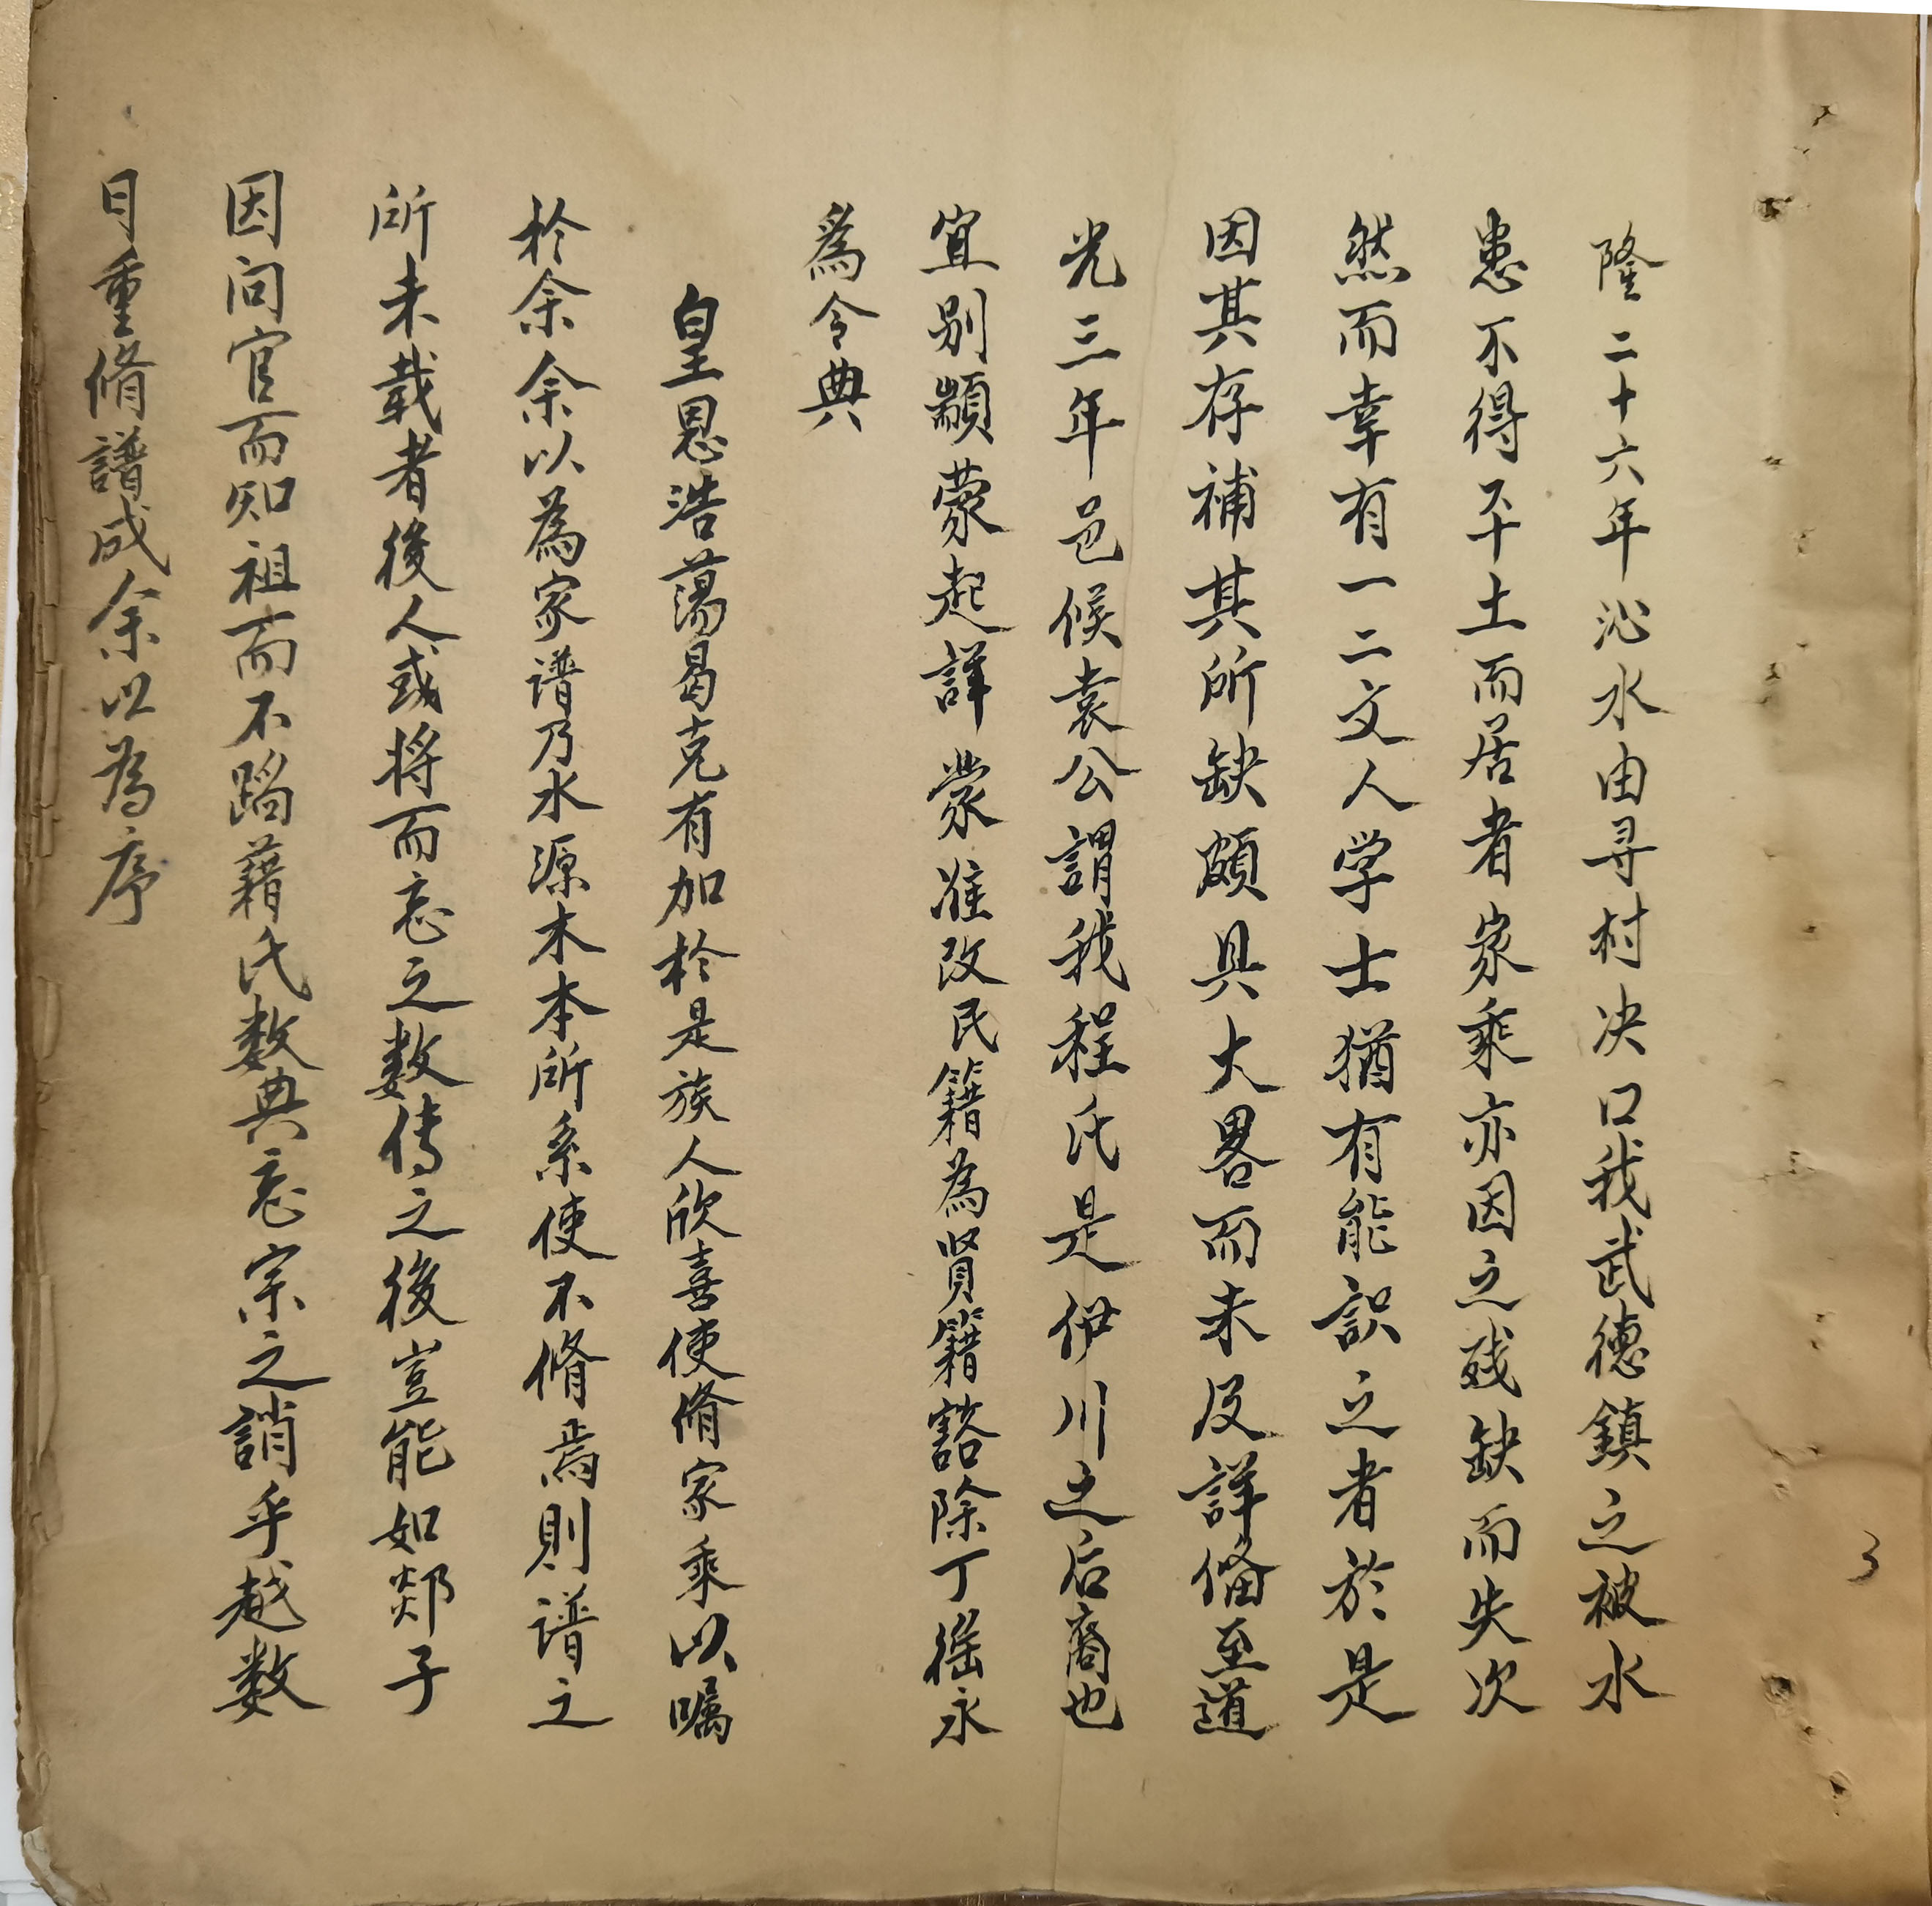 隆二十六年沁水由寻村决口我武德鎮之被水
患不得平土而居者家乘亦因之残缺而失次
然而幸有一二文人学士猶有能識之者於是
因其存補其所缺頗具大畧而未及詳俻至道
光三年邑候袁公謂我程氏是伊川之后裔也
宜别顓蒙起詳蒙准改民籍為贤籍豁除丁徭永
為令典
皇恩浩蕩曷克有加於是族人欣喜使脩家乘以嘱
於余余以為家谱乃水源木本所系使不脩焉則谱之
所未载者後人或将而忘之数传之後豈能如郯子
因问官而知祖而不蹈藉氏数典忘宗之誚乎越数
月重脩譜成余以為序
3